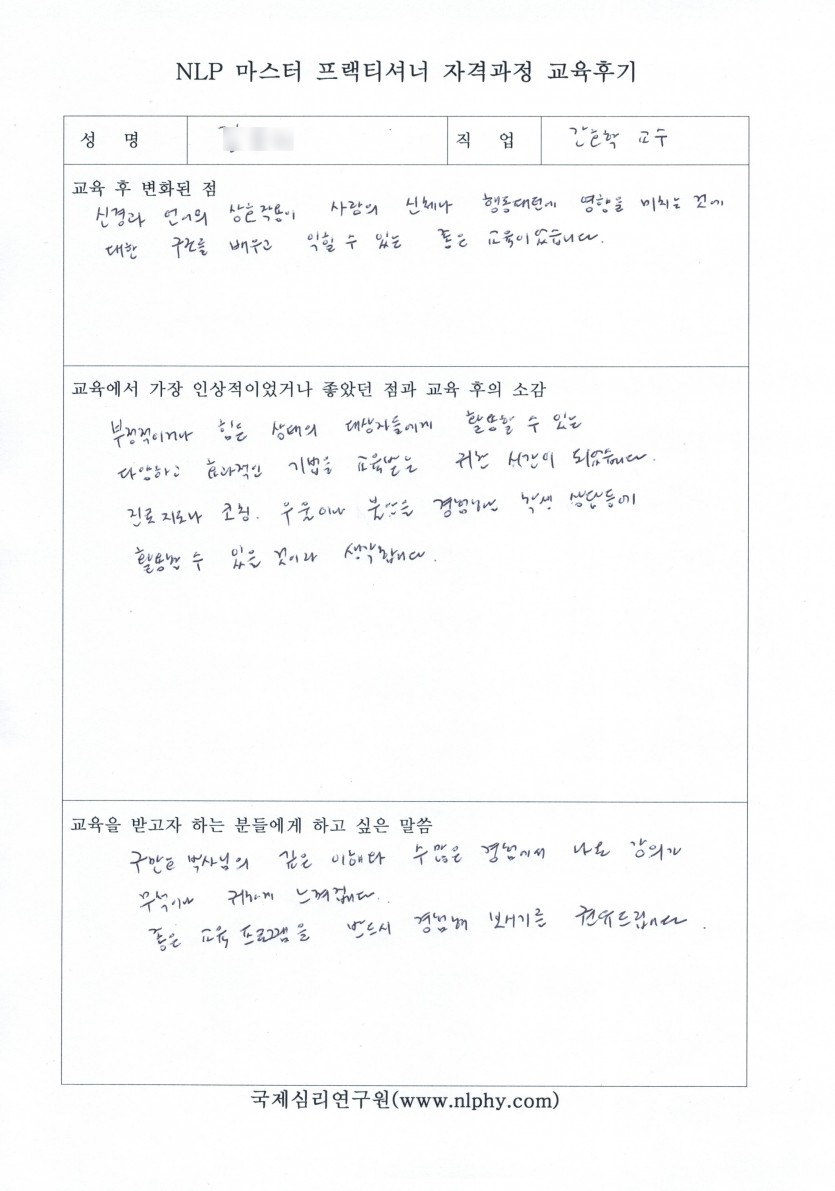 NLP 마스터 프랙티셔너 자격과정 교육후기
성 명
직 업 간호학 교수
교육 후 변화된 점
신경과 언어의 상호작용이 사람의 신체나 행동대턴에 영향을 미치는 것에
대한 구조를 배우고 익힐 수 있는 좋은 교육이었습니다.
교육에서 가장 인상적이었거나 좋았던 점과 교육 후의 소감
부정적이거나 힘든 상태의 대상자들에게 활용할 수 있는
다양하고 효과적인 기법을 교육받은 귀한 시간이 되었습니다.
진로지도나 코칭. 우울이나 경험하는 학생 상담등에
활용할 수 있을 것이라 생각합니다.
교육을 받고자 하는 분들에게 하고 싶은 말씀
박사님의 깊은 이해와 수많은 경험에서 나온 강의가
무척이나 귀하게 느껴집니다.
좋은 교육 프로그램을 반드시 경험해 보시기를 권유드립니다.
국제심리연구원(www.nlphy.com)